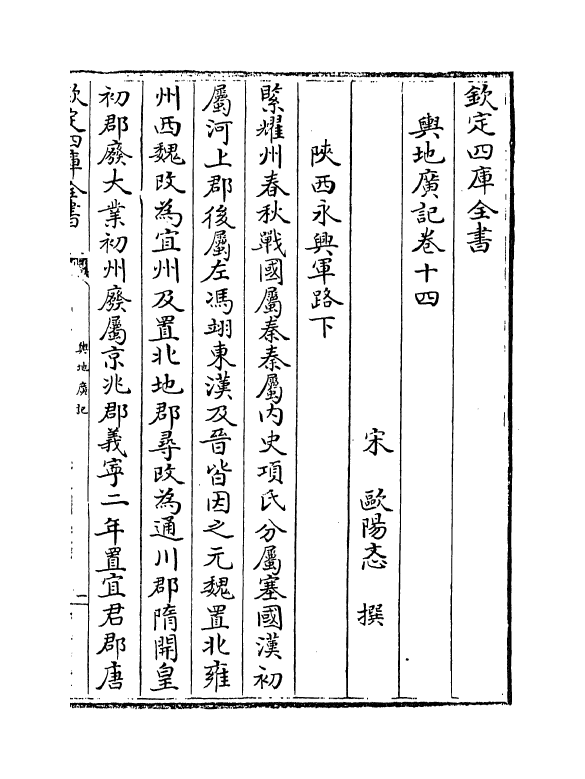 欽定四庫全書
輿地廣記卷十四
宋　歐陽忞　撰
陝西永興軍路下
緊耀州春秋戰國屬秦秦屬內史項氏分屬塞國漢初
屬河上郡後屬左馮翊東漢及晉皆因之元魏置北雍
州西魏改為宜州及置北地郡尋改為通川郡隋開皇
初郡廢大業初州廢屬京兆郡義寧二年置宜君郡唐
欽定四庫全書
輿地廣記